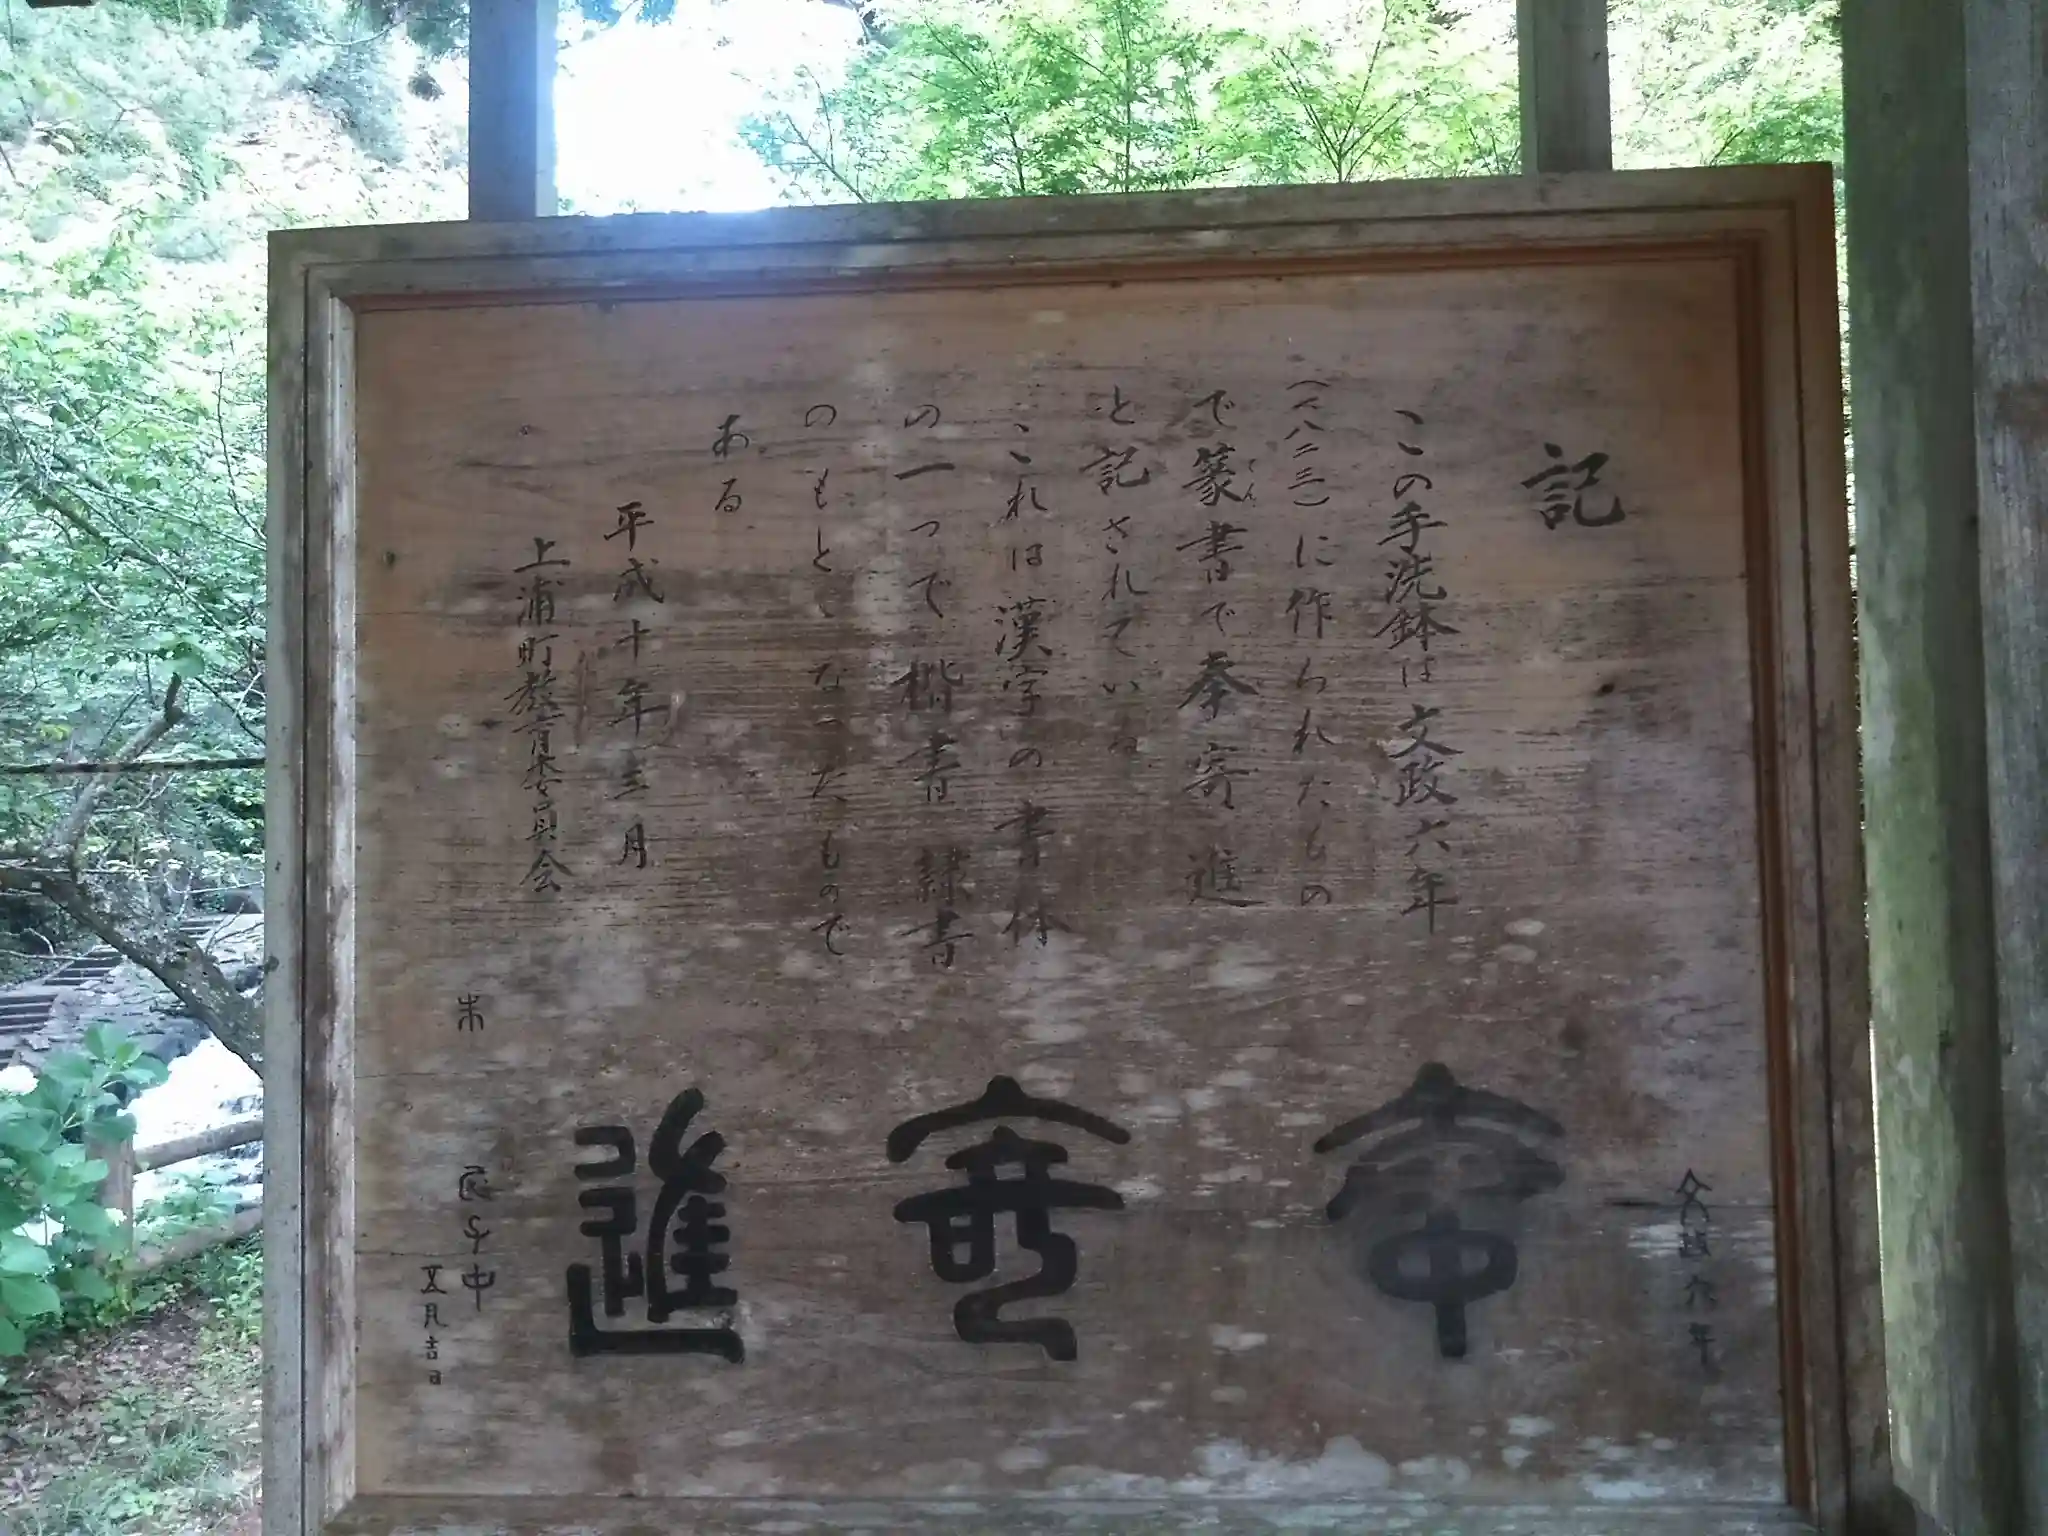 記
この手洗鉢は文政六年
(一八二三)に作られたもの
で篆書で奉寄進
てん
と記されている
これは漢字の書体
の一つで楷書隷書
のもとゝなったもので
ある
平成十年三月
上浦町教育委員会
文政六年
奉
寄
進
氏子中
五月吉日